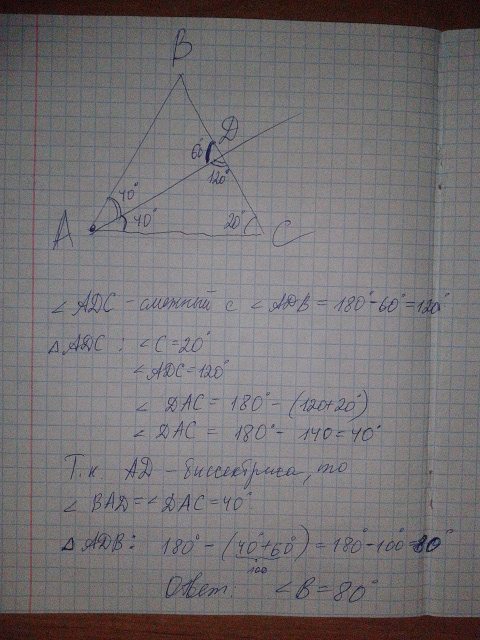 B
D
60°
120°
40°
40°
20°
A
C
∠ ADC - смежный с ∠ ADB = 180°-60°=120°
△ ADC : ∠C=20°
∠ADC=120°
∠ DAC = 180° - (120+20°)
∠ DAC = 180° - 140=40°
Т.к. AD - биссектриса, то
∠ BAD=∠ DAC=40°
△ ADB: 180° - (40°+60°) = 180°-100°=80°
100
Ответ: ∠B=80°